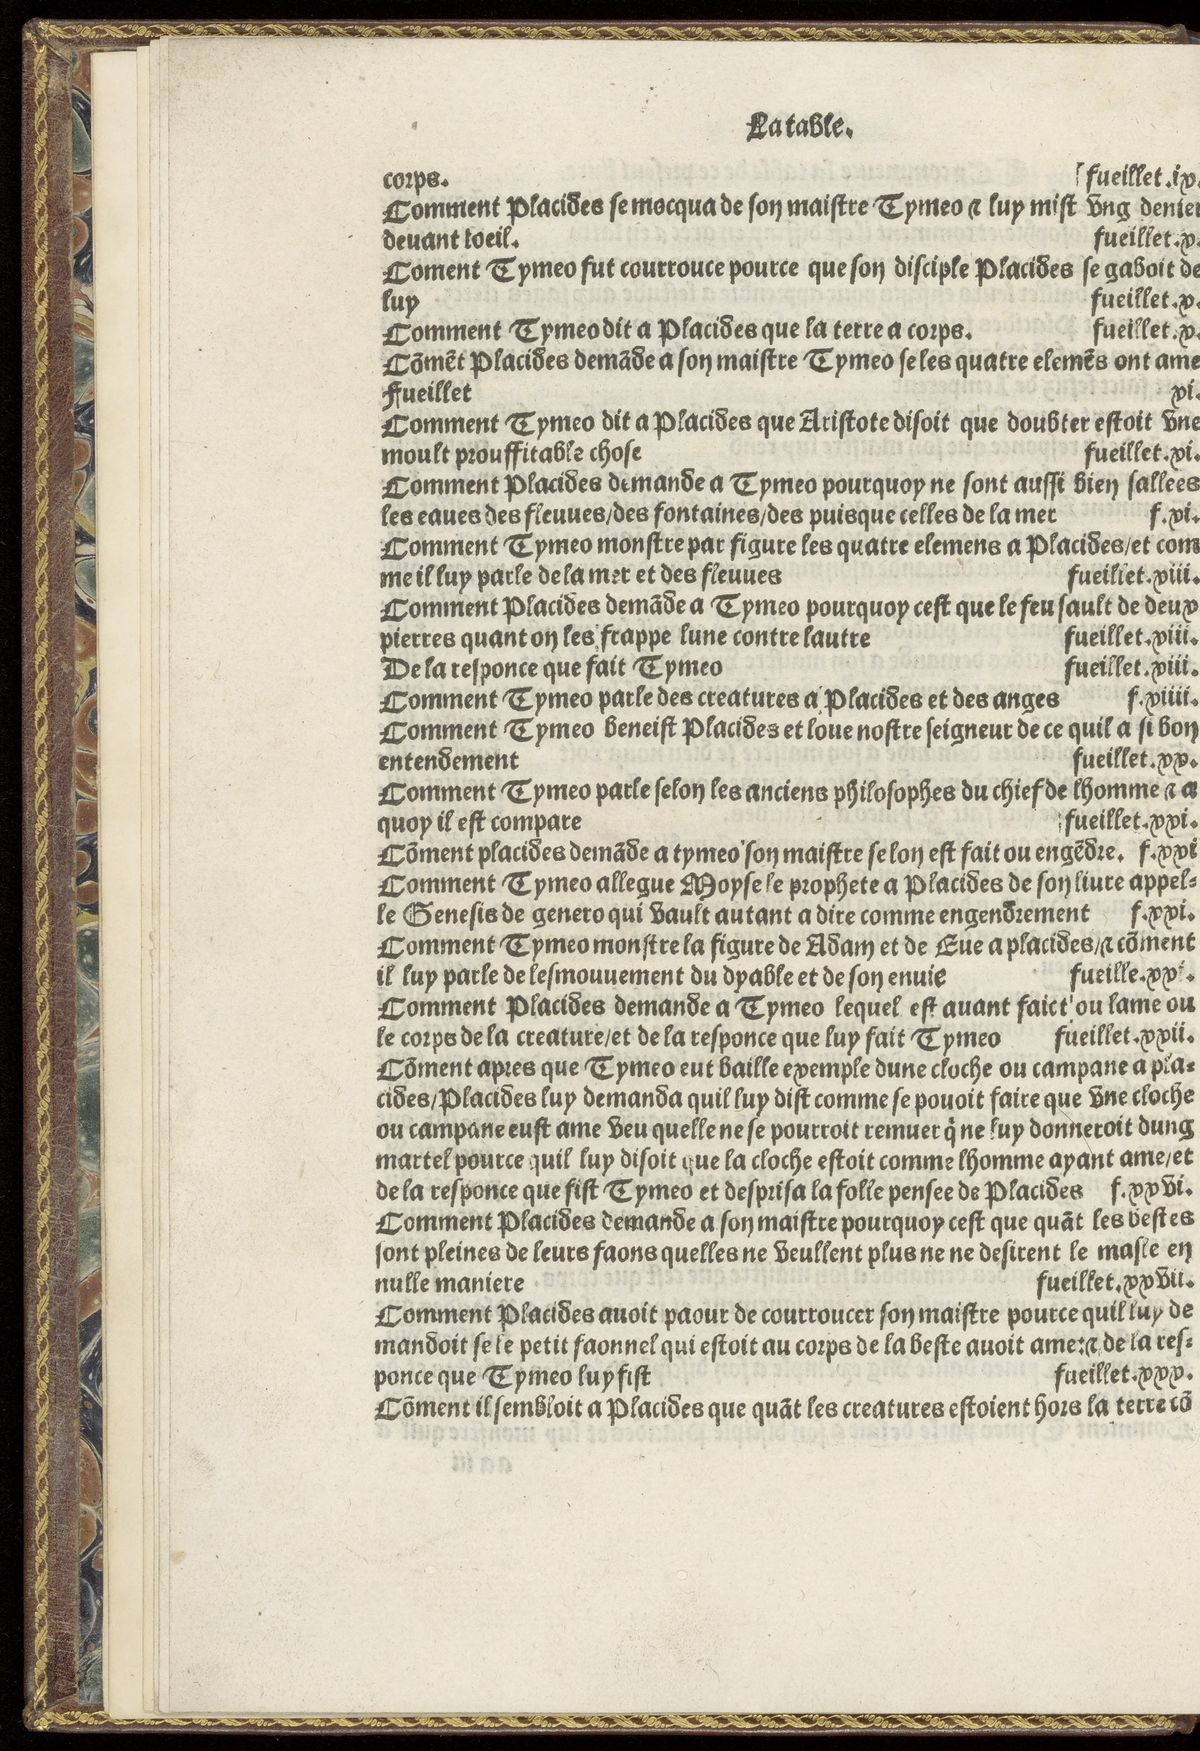 La table.
corps. fueillet.ix.
Comment Placides se mocqua de son maistre Tymeo & luy mist vng denier
deuant loeil. fueillet.x.
Coment Tymeo fut courrouce pource que son disciple Placides se gaboit de
luy fueillet.x.
Comment Tymeo dit a Placides que la terre a corps. fueillet.x.
Cōmēt Placides demāde a son maistre Tymeo se les quatre elemēs ont ame
Fueillet xi.
Comment Tymeo dit a Placides que Aristote disoit que doubter estoit vne
moult prouffitable chose fueillet.xi.
Comment Placides demande a Tymeo pourquoy ne sont aussi bien sallees
les eaues des fleuues/des fontaines/des puisque celles de la mer f.xi.
Comment Tymeo monstre par figure les quatre elemens a Placides/et com
me il luy parle de la mer et des fleuues fueillet.xiii.
Comment Placides demāde a Tymeo pourquoy cest que le feu sault de deux
pierres quant on les frappe lune contre lautre fueillet.xiii.
De la responce que fait Tymeo fueillet.xiii.
Comment Tymeo parle des creatures a Placides et des anges f.xiiii.
Comment Tymeo beneist Placides et loue nostre seigneur de ce quil a si bon
entendement fueillet.xx.
Comment Tymeo parle selon les anciens philosophes du chief de lhomme & a
quoy il est compare fueillet.xxi.
Cōment placides demāde a tymeo son maistre se lon est fait ou engēdre. f.xxi
Comment Tymeo allegue Moyse le prophete a Placides de son liure appel-
le Genesis de genero qui vault autant a dire comme engendrement f.xxi.
Comment Tymeo monstre la figure de Adam et de Eue a placides/& cōment
il luy parle de lesmouuement du dyable et de son enuie fueille.xxi.
Comment Placides demande a Tymeo lequel est auant faict ou lame ou
le corps de la creature/et de la responce que luy fait Tymeo fueillet.xxii.
Cōment apres que Tymeo eut baille exemple dune cloche ou campane a pla-
cides/Placides luy demanda quil luy dist comme se pouoit faire que vne cloche
ou campane eust ame veu quelle ne se pourroit remuer q̄ ne luy donneroit dung
martel pource quil luy disoit que la cloche estoit comme lhomme ayant ame/et
de la responce que fist Tymeo et desprisa la folle pensee de Placides f.xxvi.
Comment Placides demande a son maistre pourquoy cest que quāt les bestes
sont pleines de leurs faons quelles ne veullent plus ne ne desirent le masle en
nulle maniere fueillet.xxvii.
Comment Placides auoit paour de courroucer son maistre pource quil luy de
mandoit se le petit faonnel qui estoit au corps de la beste auoit ame:& de la res-
ponce que Tymeo luy fist fueillet.xxx.
Cōment il sembloit a Placides que quāt les creatures estoient hors la terre cō